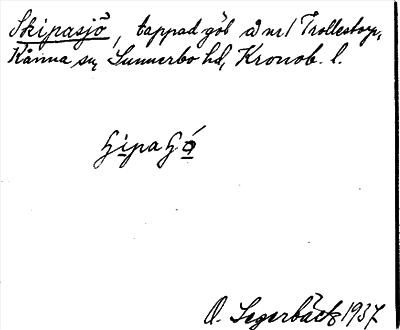 Skipasjö, tappad göl å nr 1 Trollestorp,
Kånna sn, Sunnerbo hd, Kronob. l.
ʃipaʃó
O. Segerbäck 1937